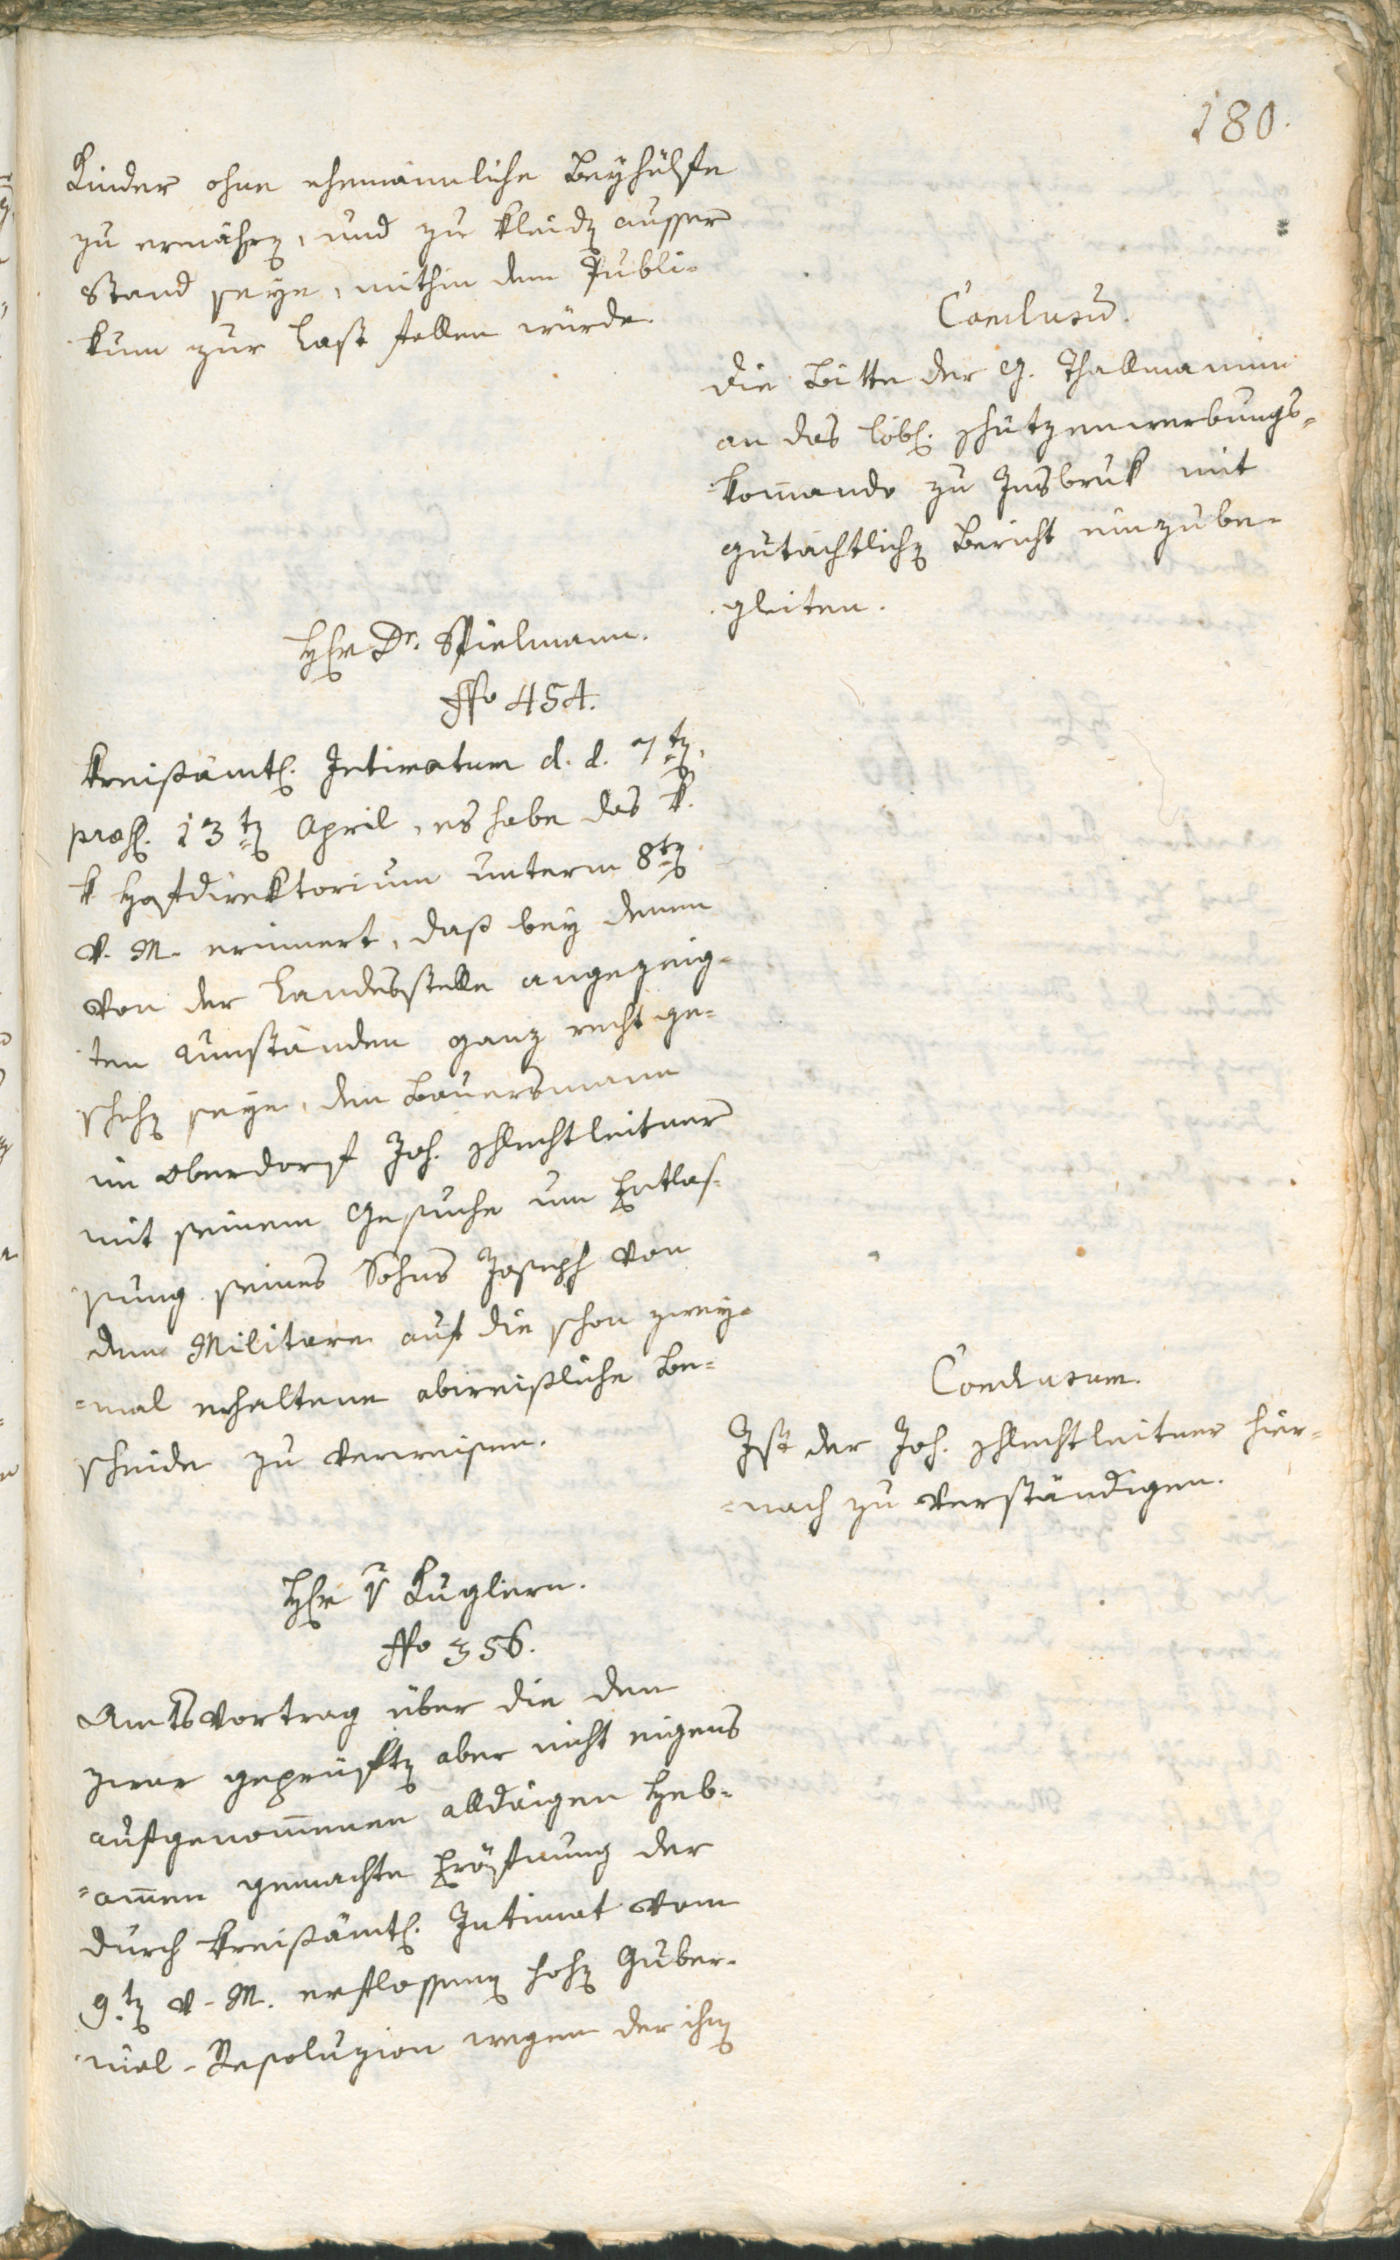 180.
Kinder ohne ehemännliche Beyhülfe
zu ernähren, und zu kleiden ausser
Stand seye, mithin dem Publi-
kum zur Last fallen würde.
Conclusum.
die Bitte der G. Thallmannin
an das löbl. Schützenwerbungs-
kommando zu Insbruk mit
gutächtlichen Bericht einzube-
gleiten.
Hr Dr. Spielmann.
No 454.
Kreißämtl. Intimatum d. d. 7ten,
præs. 13ten April, es habe das k.
k Hofdirektorium unterm 8ten
v. M. erinnert, daß bey denen
von der Landesstelle angezeig-
ten Umständen ganz recht ge-
schehen seye, den Bauersmann
in Oberdorf Joh. Schlechtleitner
mit seinem Gesuche um Entlas-
sung seines Sohns Joseph von
dem Militare auf die schon zwey-
=mal erhaltene abweißliche Be-
scheide zu verweisen.
Conclusum.
Ist der Joh. Schlechtleitner hier-
=nach zu verständigen.
Hr v Kuglern.
No 356.
Amtsvortrag über die den
zwar geprüften aber nicht eigens
aufgenommenen alldaigen Heb-
=ammen gemachte Eröfnung der
durch kreißämtl. Intimat vom
9.ten v. M. erflossenen hohen Guber-
nial-Resoluzion wegen der ihnen